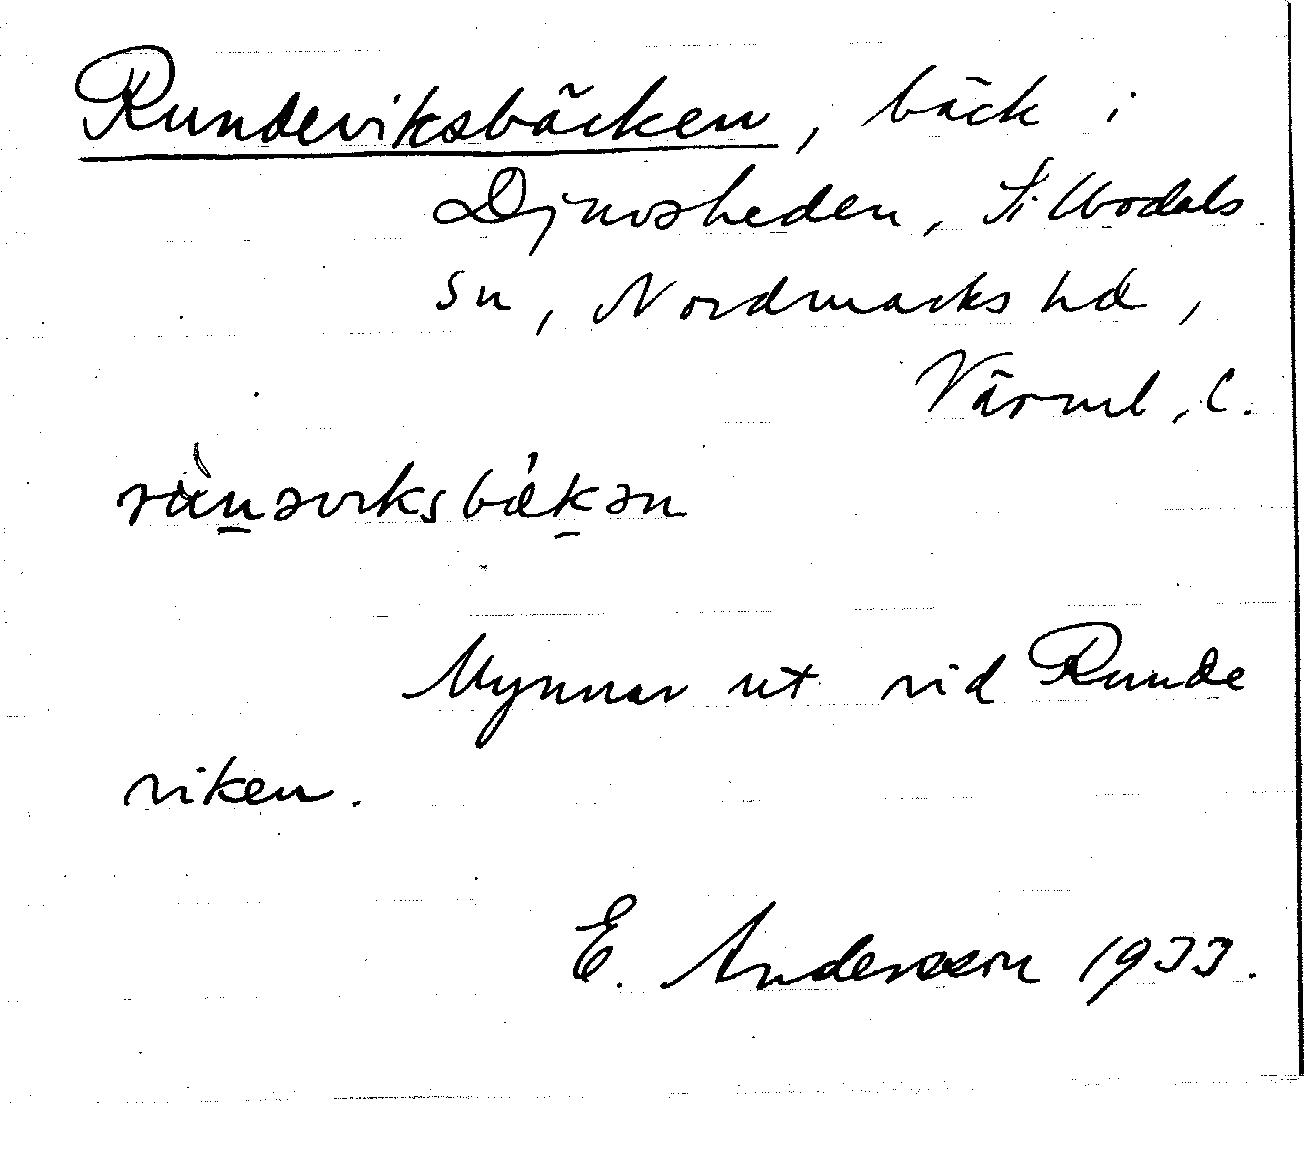 Runderviksbäcken, bäck i
Djuvsheden, Sillbodals
sn, Nordmarks hd,
Värml. l.
Mynnar ut vid Runde
viken.
E. Andersson 1933.